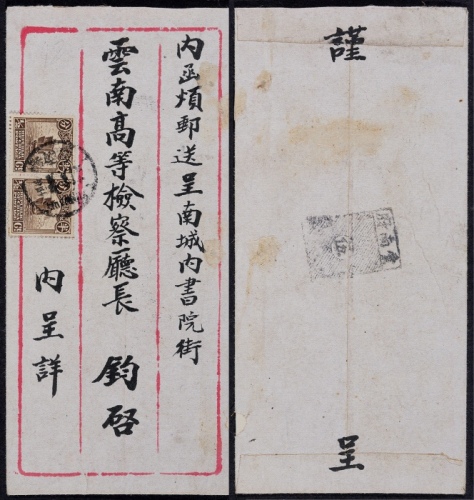 內函煩郵送呈南城內書院街
雲南高等檢察廳長 鈞啓
內呈詳
謹
呈